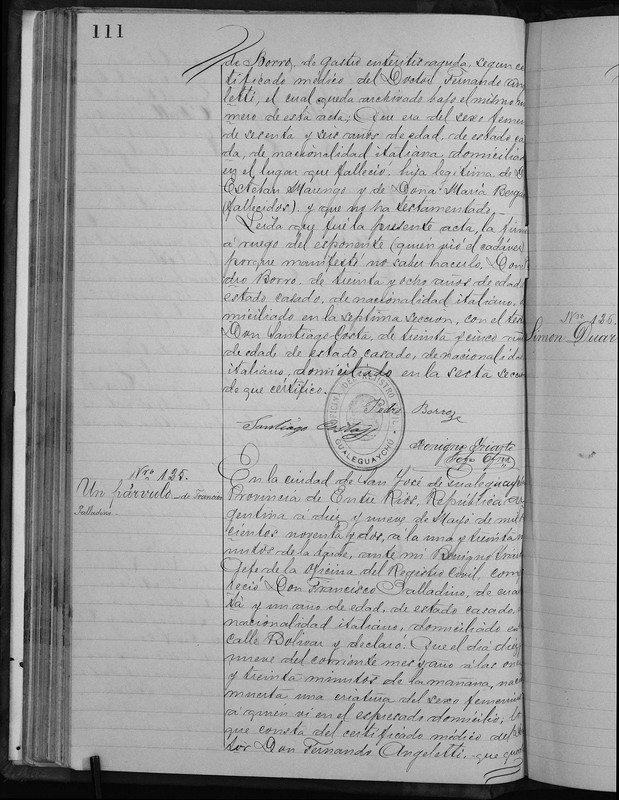 111
de Borro, de gastro enteritis aguda, segun
tificado médico del Doctor Fernando
letti, el cual queda archivado bajo el mismo
mero de esta acta; Que era del sexo
de sesenta y seis años de edad, de estado
da, de nacionalidad italiana, domiciliada
en el lugar que falleció, hija legitima de
Estevan Marengo y de Doña Maria
(fallecidos), y que no ha testamentado.
Leida que fué la presente acta, la
á ruego del esponente (quien vió el cadaver)
porque manifestó no saber hacerlo, Don
dro Borro, de treinta y ocho años de edad
estado casado, de nacionalidad italiano,
miciliado en la septima seccion, con el
Don Santiago Costa, de treinta y cinco
de edad, de estado casado, de nacionalidad
italiano, domiciliado en la sesta
de que certifico.
Pedro Borro
Santiago Costa
OFICINA DEL REGISTRO CIVIL
GUALEGUAYCHÚ
Benigno Iriarte
Jefe
Nro 125.
Un párvulo de Francisco
Palladino
En la ciudad de San José de
Provincia de Entre Rios, República
gentina á diez y nueve de Mayo de mil
cientos noventa y dos, á la una y treinta
nutos de la tarde, ante mi Benigno
Jefe de la Oficina del Registro Civil,
reció Don Francisco Palladino, de
ta y un año de edad, de estado casado,
nacionalidad italiano, domiciliado en
calle Bolivar y declaró: Que el dia diez
nueve del corriente mes y año á las
y treinta minutos de la mañana,
muerta una criatura del sexo femenino
á quien vi en el espresado domicilio;
que consta del certificado médico del
tor Don Fernando Angeletti, que
Nro 126.
Simon